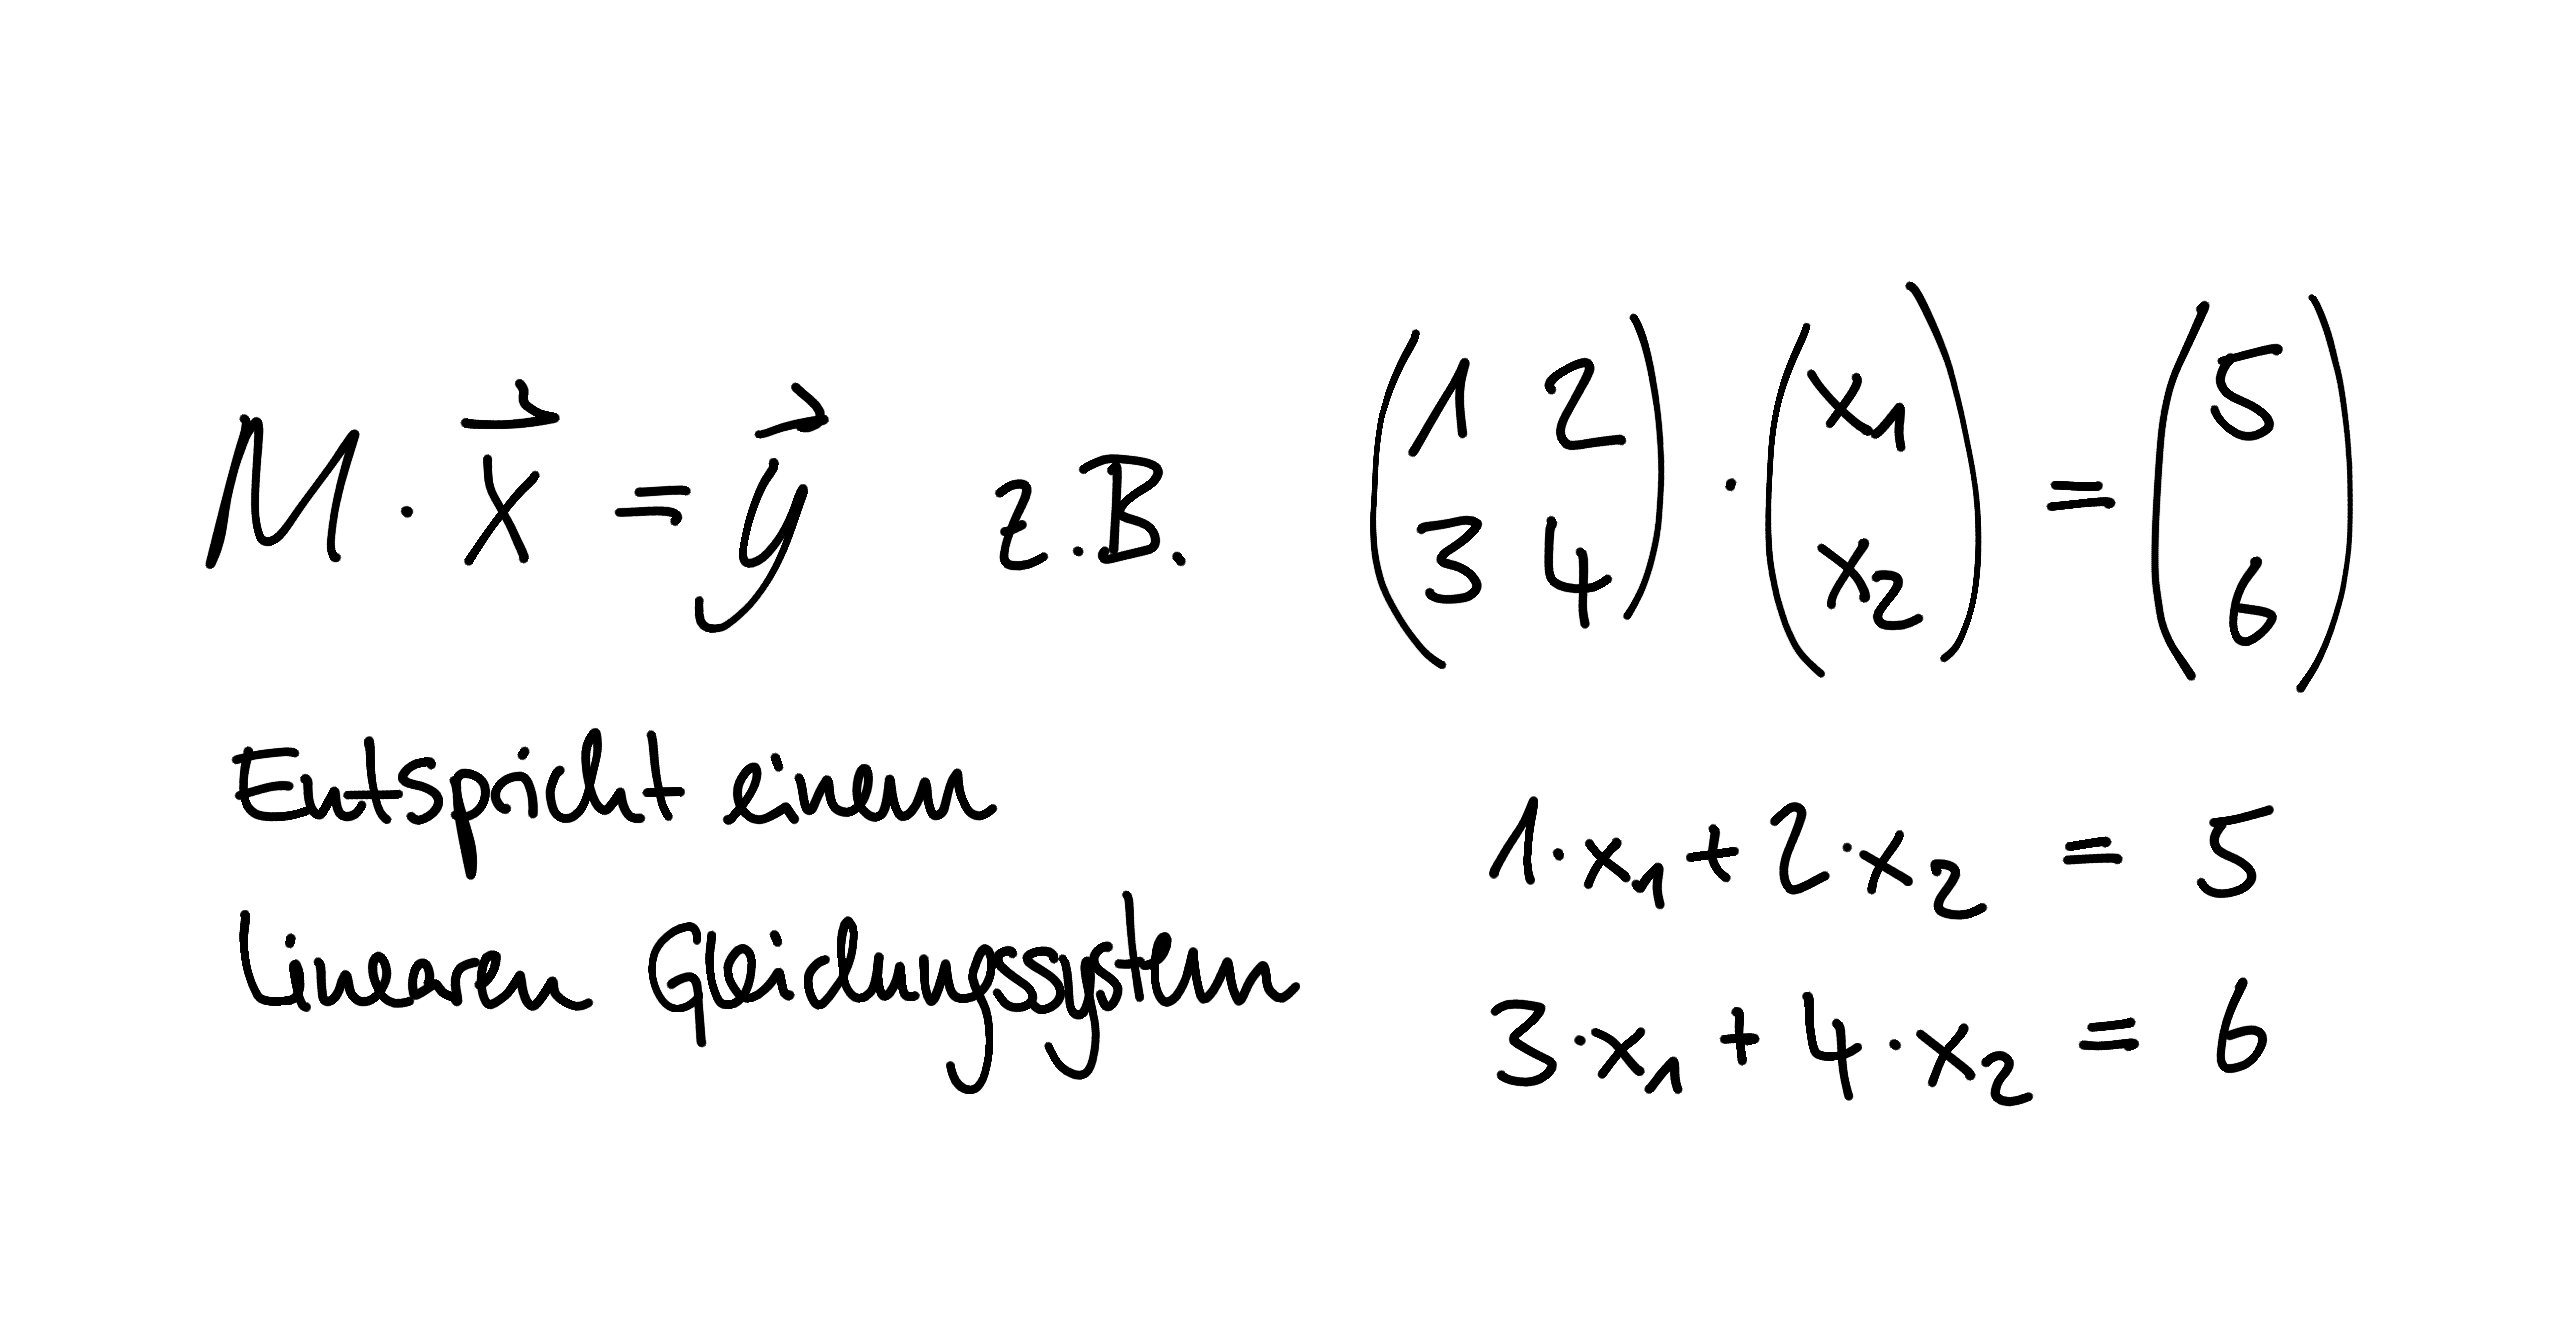 M · x⃗ = y⃗ z.B. (1 2 3 4) · (x₁ x₂) = (5 6)
Entspricht einem
Linearen Gleichungssystem
1·x₁ + 2·x₂ = 5
3·x₁ + 4·x₂ = 6